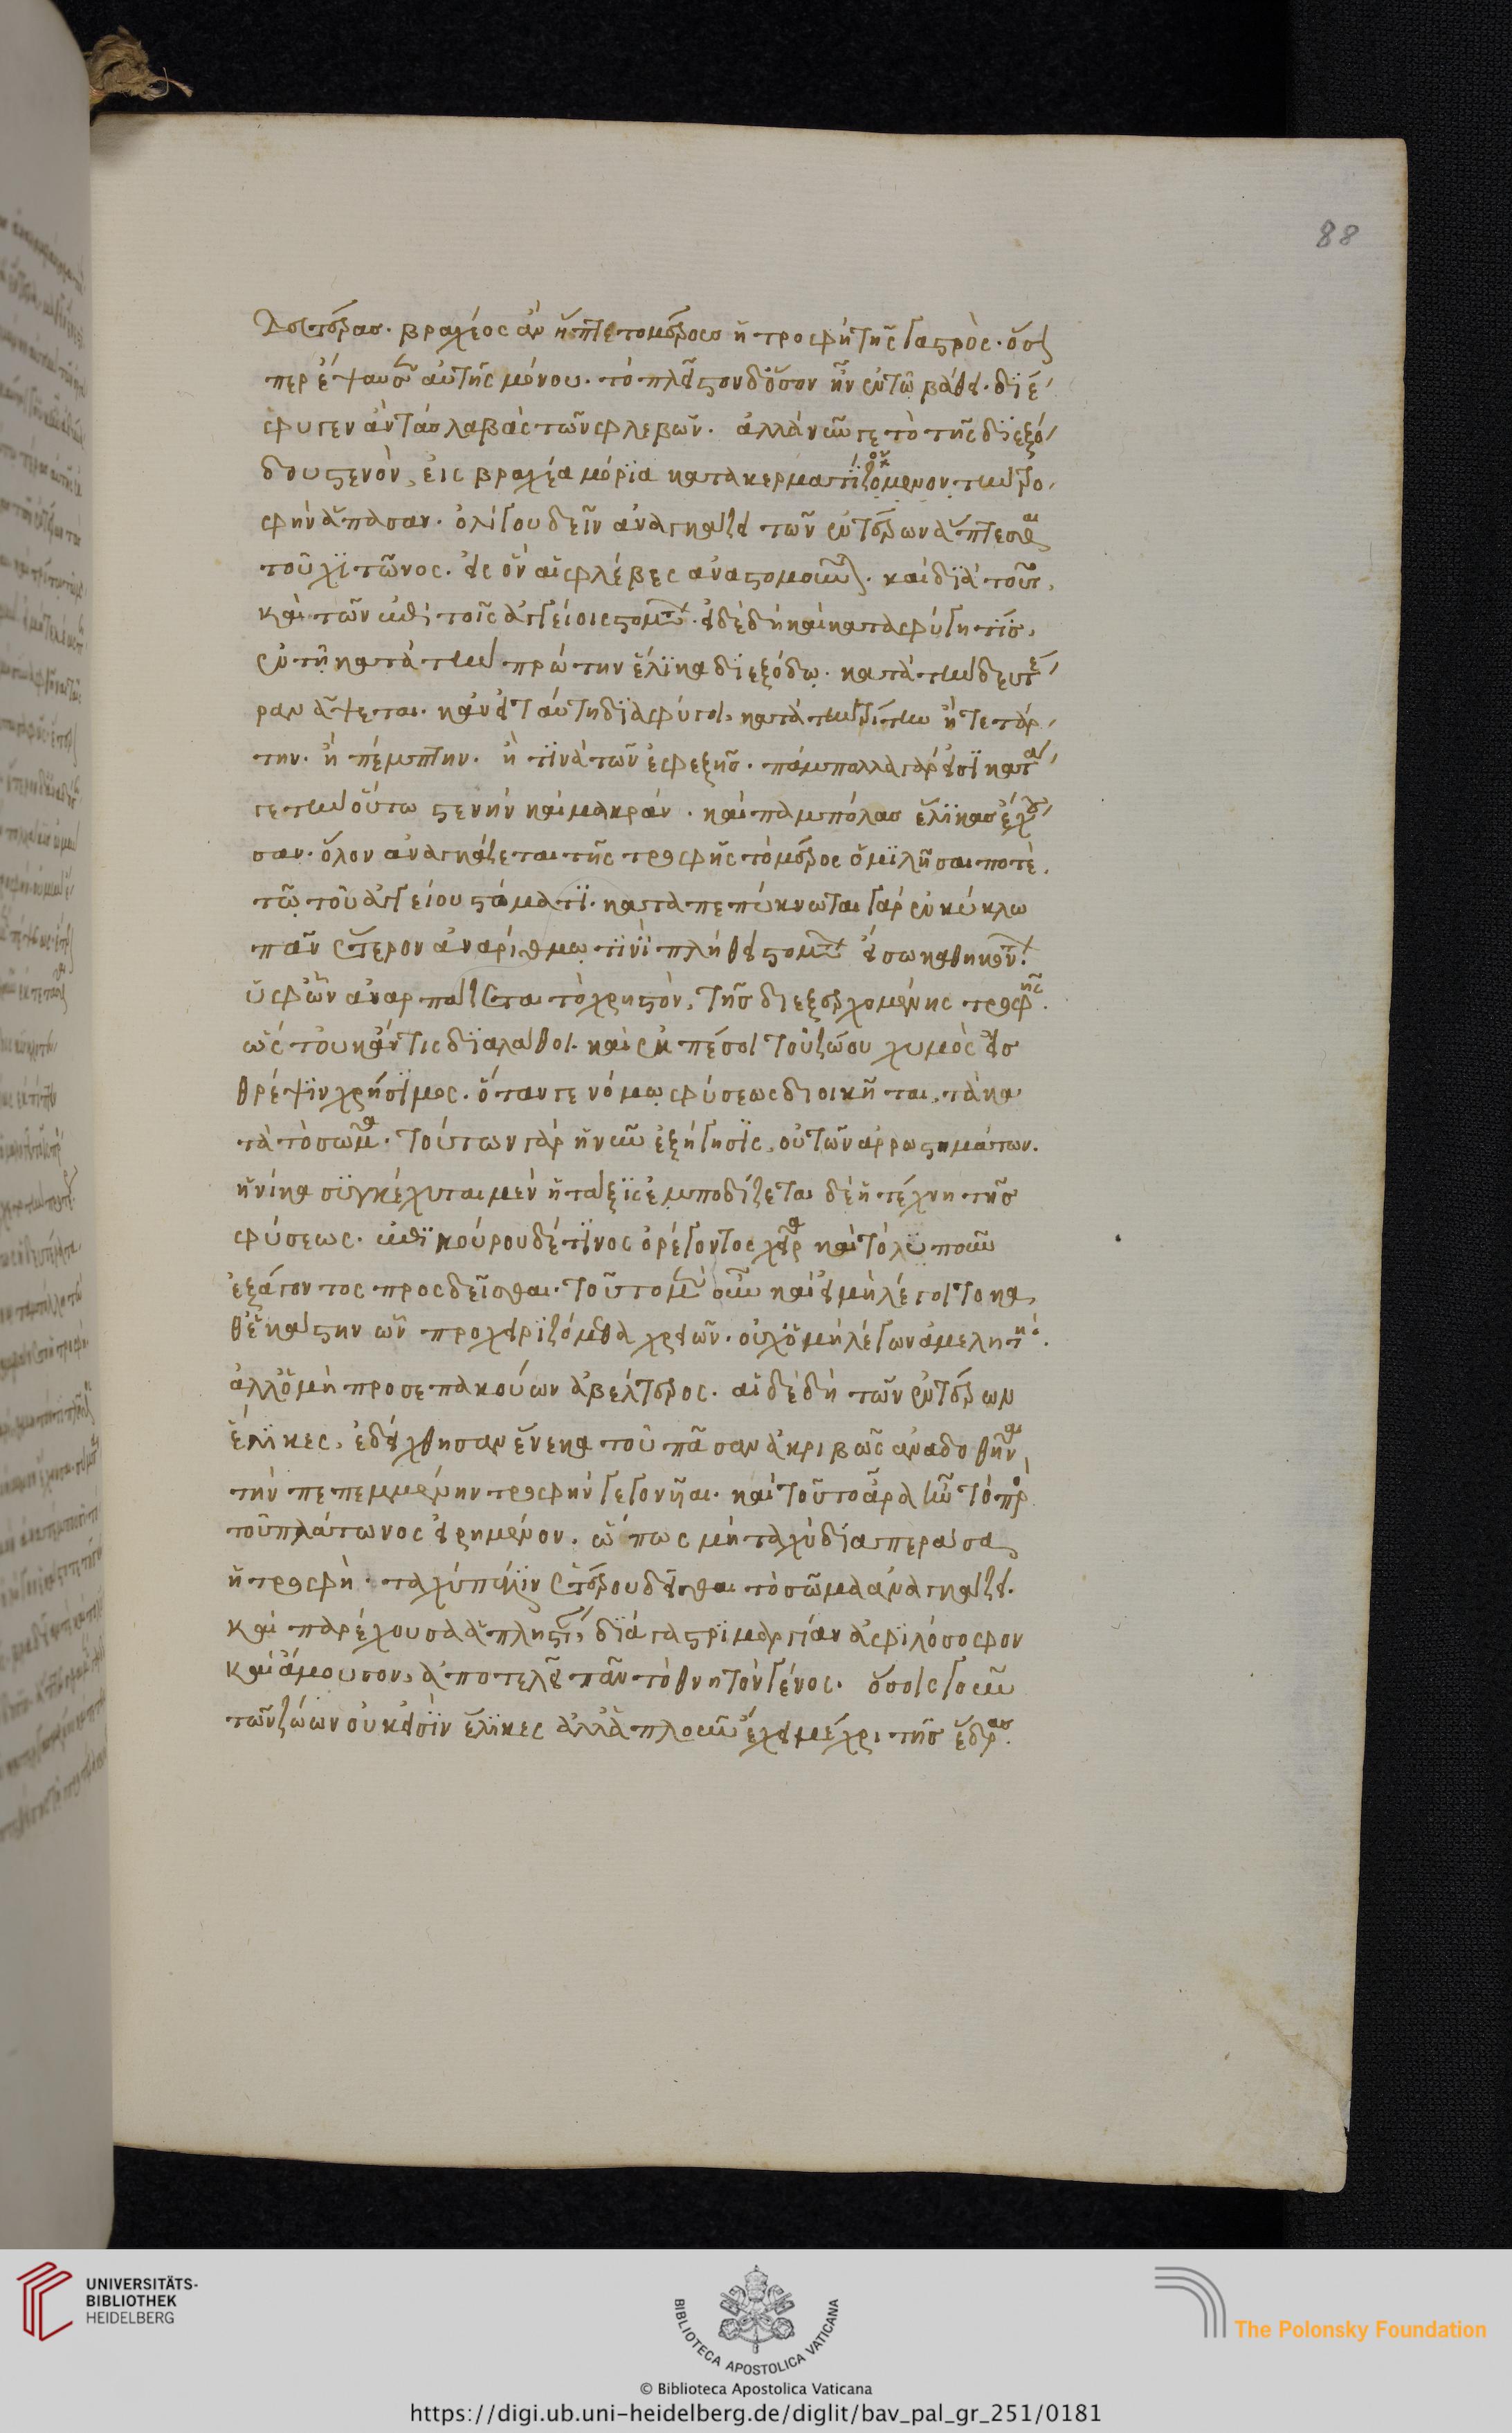 βραχέος ἂν ἥπτετο μέρουσ ἡ τροφὴ τῆς γαστρός. ὅσον
περ ἔψαυσεν αὐτῆς μόνου. τὸ πλεῖστον δ' ὅσον ἦν ἐν τῷ βάθει. διέ
φυγεν ἂν τὰσ λαβὰς τῶν φλεβῶν. ἀλλὰ νῦν γε τὸ τῆς διεξό
δου στενὸν, εἰς βραχέα μόρϊα κατακερματϊζόμενον τὴν τρο
φὴν ἅπασαν. ὀλίγου δεῖν ἀναγκάζει τῶν ἐντέρων ἅπτεσθαι
τοῦ χϊτῶνος. εἰς ὃν αἱ φλέβες ἀναστομοῦνται. καὶ διὰ τοῦτο,
καὶ τῶν ἐπὶ τοῖς ἀγγείοις στομάτων. εἰ δὲ δὴ καὶ καταφύγη τϊσ,
ἐν τῇ κατὰ τὴν πρώτην ἕλϊκα διεξόδῳ. κατὰ τὴν δευτέ
ραν ἅψεται. κἂν εἰ ταύτη διαφύγοι, κατὰ τὴν τρίτην ἢ τετάρ
την. ἢ πέμπτην. ἢ τϊνὰ τῶν ἐφεξῆσ. πάμπολλα γάρ εἰσϊ κατά
γε τὴν οὕτω στενὴν καὶ μακράν. καὶ παμπόλασ ἕλϊκασ ἔχου
σαν. ὅλον ἀναγκάζεται τῆς τροφῆς τὸ μέρος ὁμϊλῆσαι ποτὲ,
τῷ τοῦ ἀγγείου στόματϊ. καταπεπύκνωται γὰρ ἐν κύκλω
πᾶν ἔντερον ἀναρίθμῳ τϊνὶ πλήθει στομάτων εἴσω καθηκόντων.
ὑφ' ὧν ἀναρπάζεται τὸ χρηστὸν, τῆσ διεξερχομένης τροφῆς.
ὥς τ' οὐκ ἄν τις διαλάθοι. καὶ ἐκπέσοι τοῦ ζώου χυμὸς εἰσ
θρέψϊν χρήσϊμος. ὅταν γε νόμῳ φύσεως διοικῆται, τὰ κα
τὰ τὸ σῶμα. τούτων γὰρ ἦν νῦν ἐξήγησϊς, οὐ τῶν ἀρρωστημάτων.
ἡνίκα συγκέχυται μὲν ἡ τάξϊς ἐμποδίζεται δὲ ἡ τέχνη τῆσ
φύσεως. ἐπϊκούρου δέ τϊνος ὀρέγοντος χεῖρα καὶ τὸ λυποῦν
ἐξάγοντος προσδεῖσθαι. τοῦτο μὲν οὖν καὶ εἰ μὴ λέγοιτο κα
θ' ἕκαστην ὧν προχειρϊζόμεθα χρειῶν. οὐχ ὁ μὴ λέγων ἀμελητής.
ἀλλ' ὁ μὴ προσεπακούων ἀβέλτερος. αἱ δὲ δὴ τῶν ἐντέρων
ἕλϊκες, ἐδείχθησαν ἕνεκα τοῦ πᾶσαν ἀκριβῶς ἀναδοθῆναι
τὴν πεπεμμένην τροφὴν γεγονέναι. καὶ τοῦτο ἄρα ἦν τὸ πρὸς
τοῦ πλάτωνος εἰρημένον. ὅπως μὴ ταχὺ διαπερῶσα
ἡ τροφὴ. ταχὺ πάλϊν ἑτέρου δεῖσθαι τὸ σῶμα ἀναγκάζει.
καὶ παρέχουσα ἀπληστίαν, διὰ γαστρϊμαργίαν ἀφϊλόσοφον
καὶ ἄμουσον, ἀποτελεῖ πᾶν τὸ θνητὸν γένος. ὅσοις γοῦν
τῶν ζώων οὐκ εἰσϊν ἕλϊκες ἀλλὰ ἁπλοῦν ἔχει μέχρι τῆσ ἕδρασ.
88
UNIVERSITÄTS-
BIBLIOTHEK
HEIDELBERG
BIBLIOTECA APOSTOLICA VATICANA
The Polonsky Foundation
© Biblioteca Apostolica Vaticana
https://digi.ub.uni-heidelberg.de/diglit/bav_pal_gr_251/0181